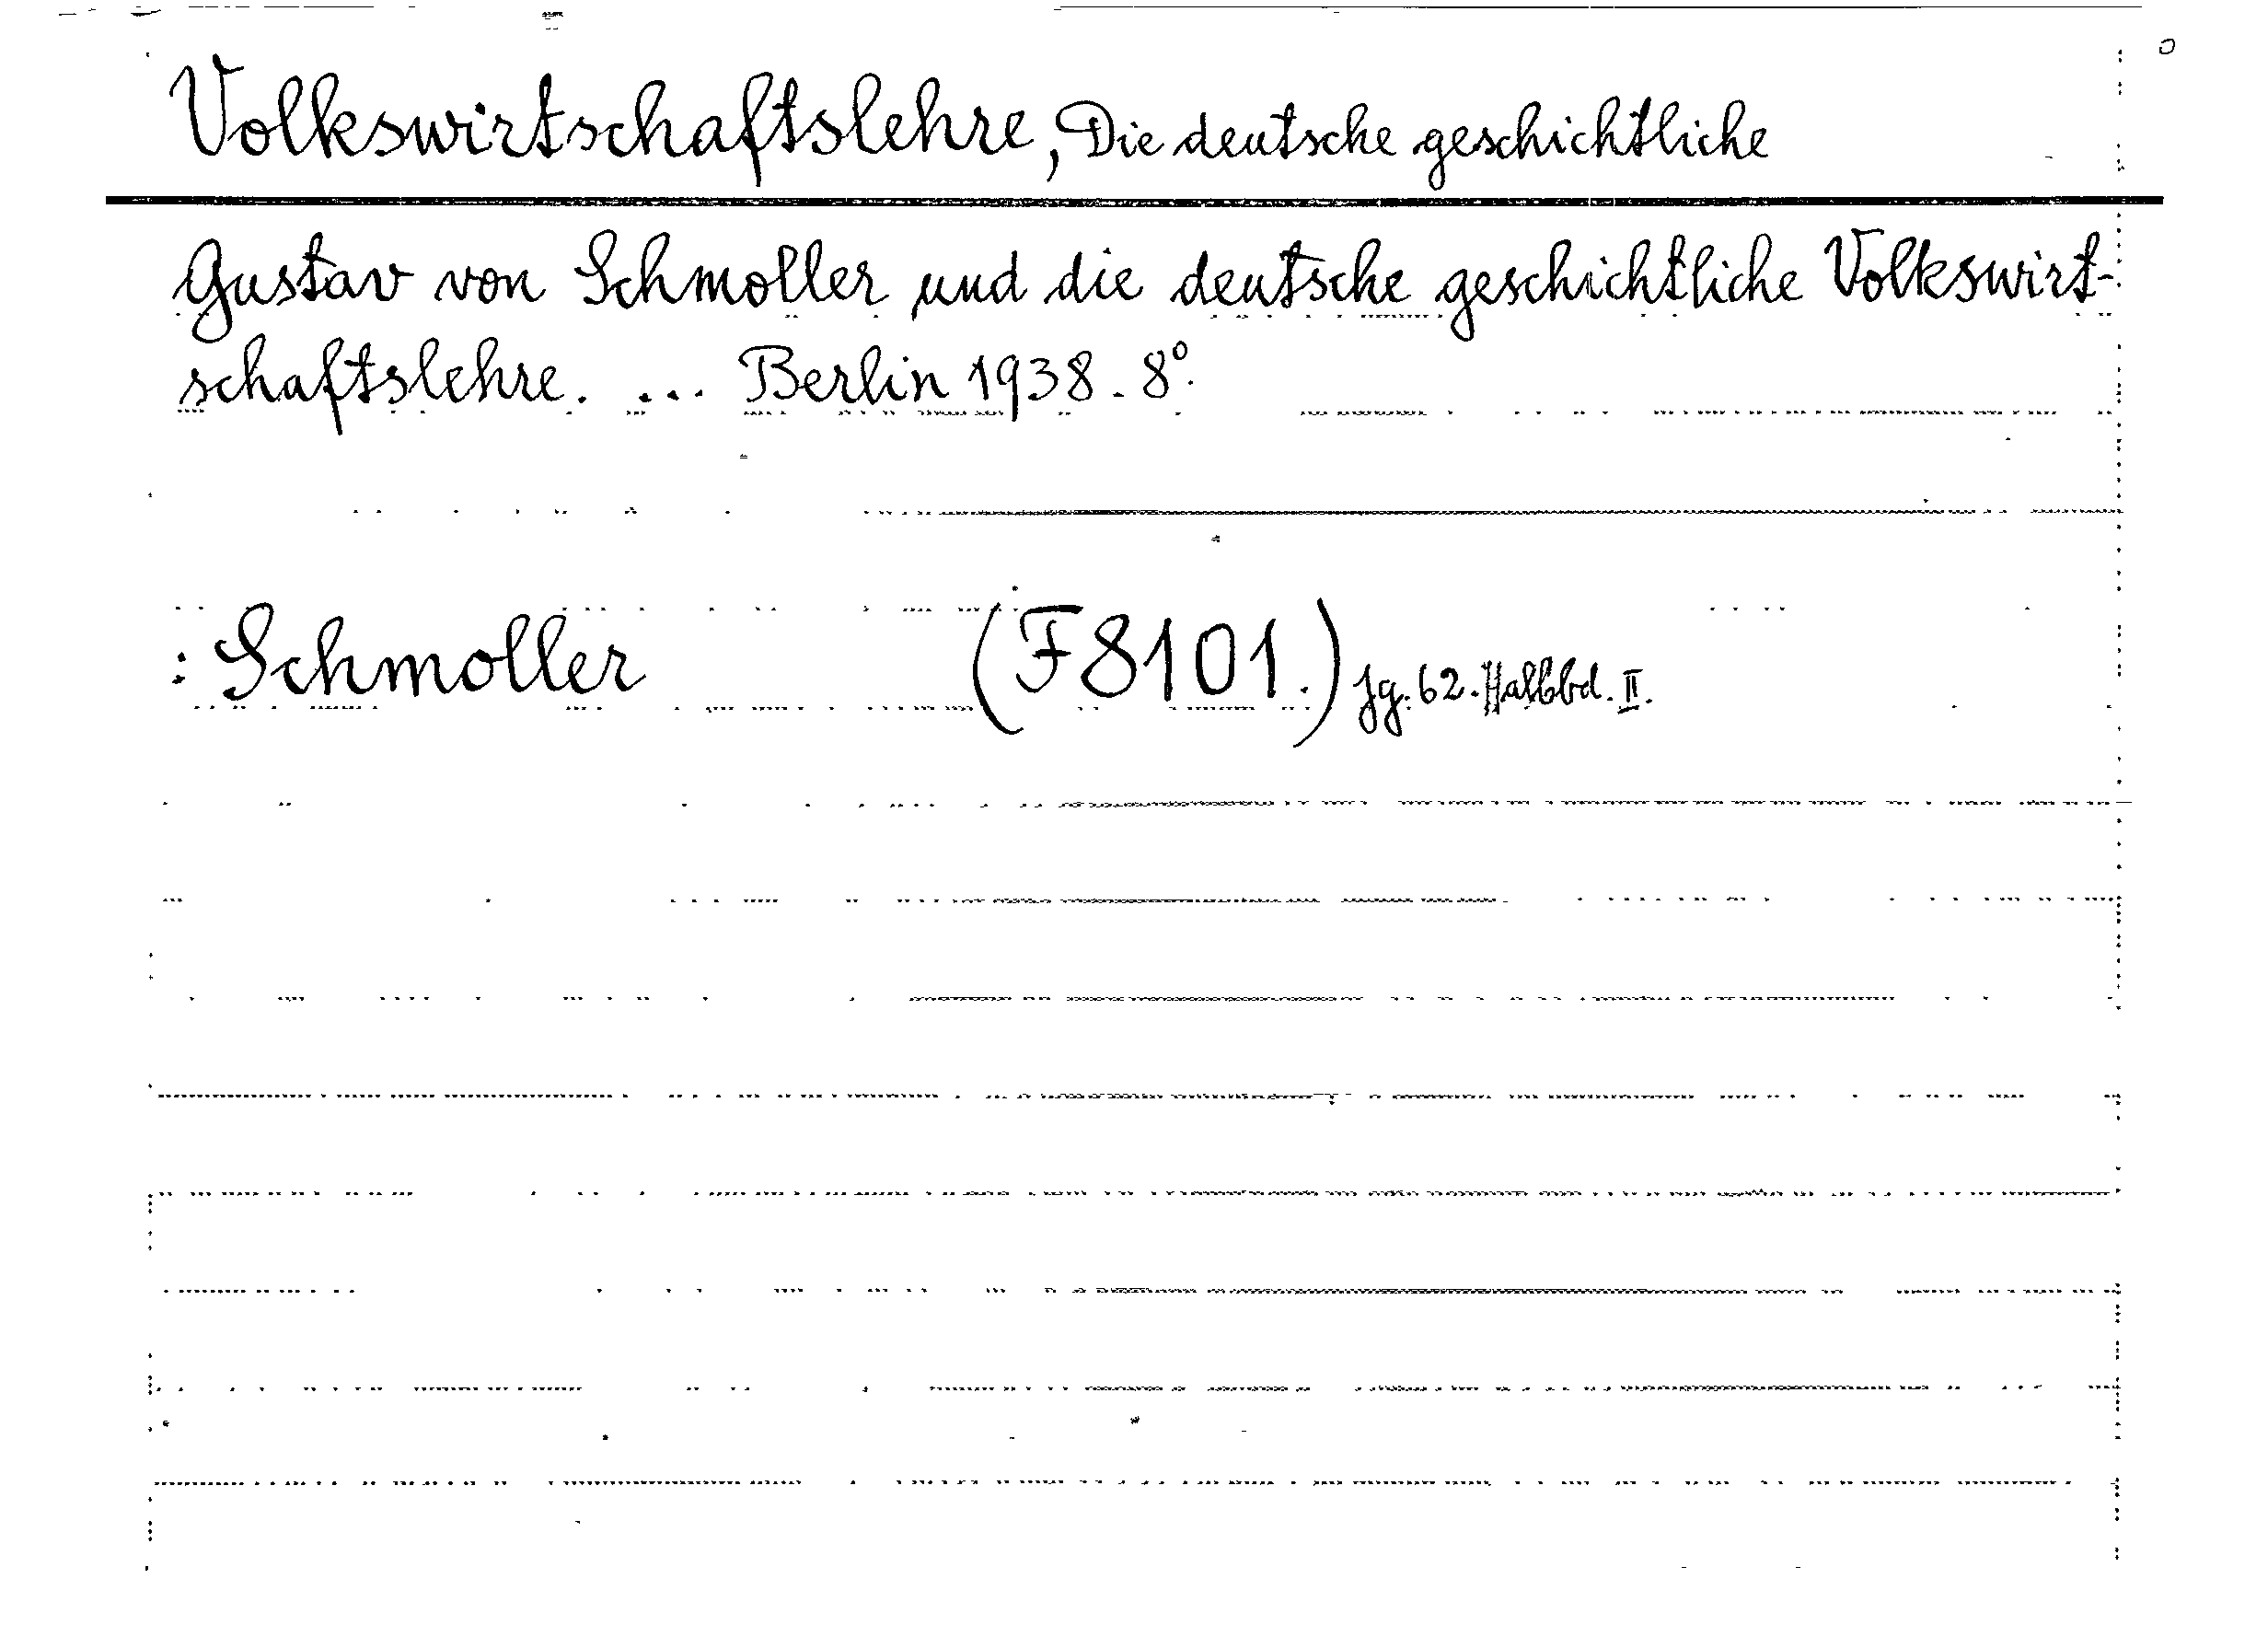 Volkswirtschaftslehre, Die deutsche geschichtliche
Gustav von Schmoller und die deutsche geschichtliche Volkswirt-
schaftslehre. ... Berlin 1938. 8º.
: Schmoller (F 8101.) Jg. 62. Halbbd. II.